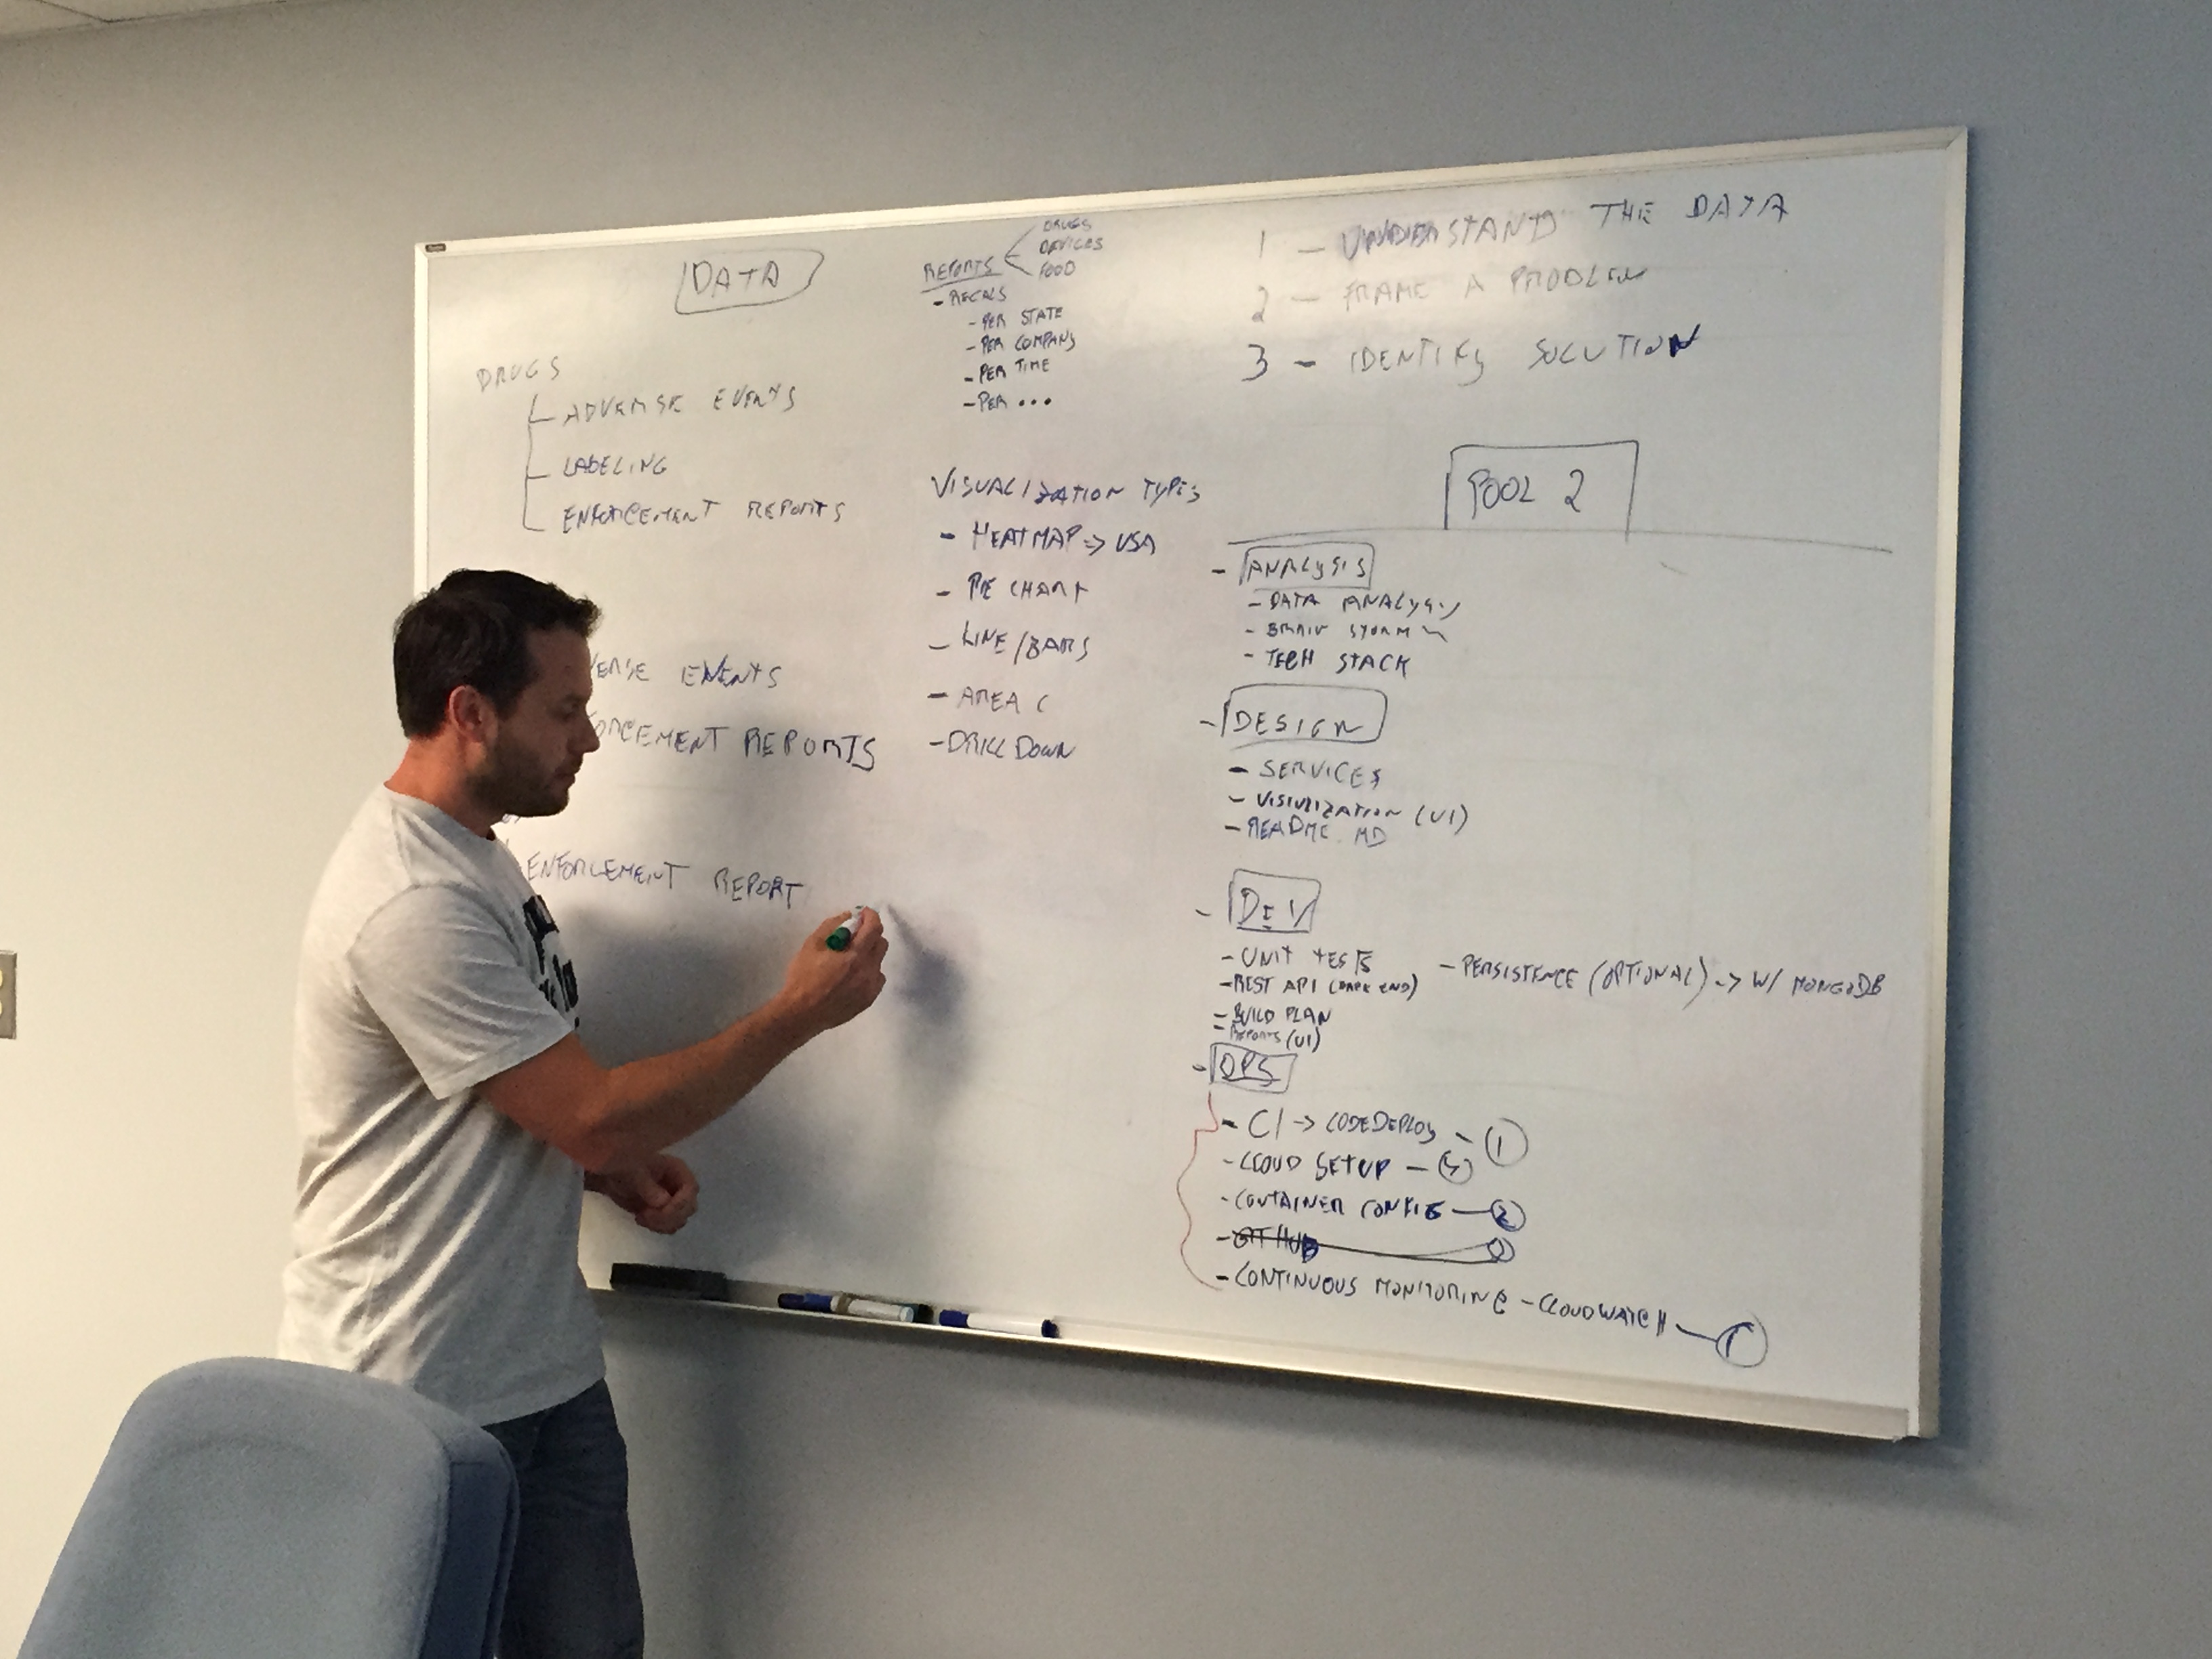 DATA
DRUGS
ADVERSE EVENTS
LABELING
ENFORCEMENT REPORTS
VERSE EVENTS
FORCEMENT REPORTS
ENFORCEMENT REPORT
REPORTS
DRUGS
DEVICES
FOOD
- RECALS
- PER STATE
- PER COMPANY
- PER TIME
- PER ...
VISUALIZATION TYPES
- HEATMAP => USA
- PIE CHART
- LINE/BARS
- AREA C
- DRILL DOWN
1 - UNDERSTAND THE DATA
2 - FRAME A PROBLEM
3 - IDENTIFY SOLUTION
POOL 2
- ANALYSIS
- DATA ANALYSIS
- BRAIN STORM
- TECH STACK
- DESIGN
- SERVICES
- VISIULIZATION (UI)
- README.MD
- DEV
- UNIT TESTS
- REST API (BACK END)
- PERSISTENCE (OPTIONAL) -> W/ MONGODB
- BUILD PLAN
- REPORTS (UI)
- OPS
- CI -> CODEDEPLOY - 1
- CLOUD SETUP -
- CONTAINER CONFIG - 2
- GITHUB
- CONTINUOUS MONITORING - CLOUDWATCH